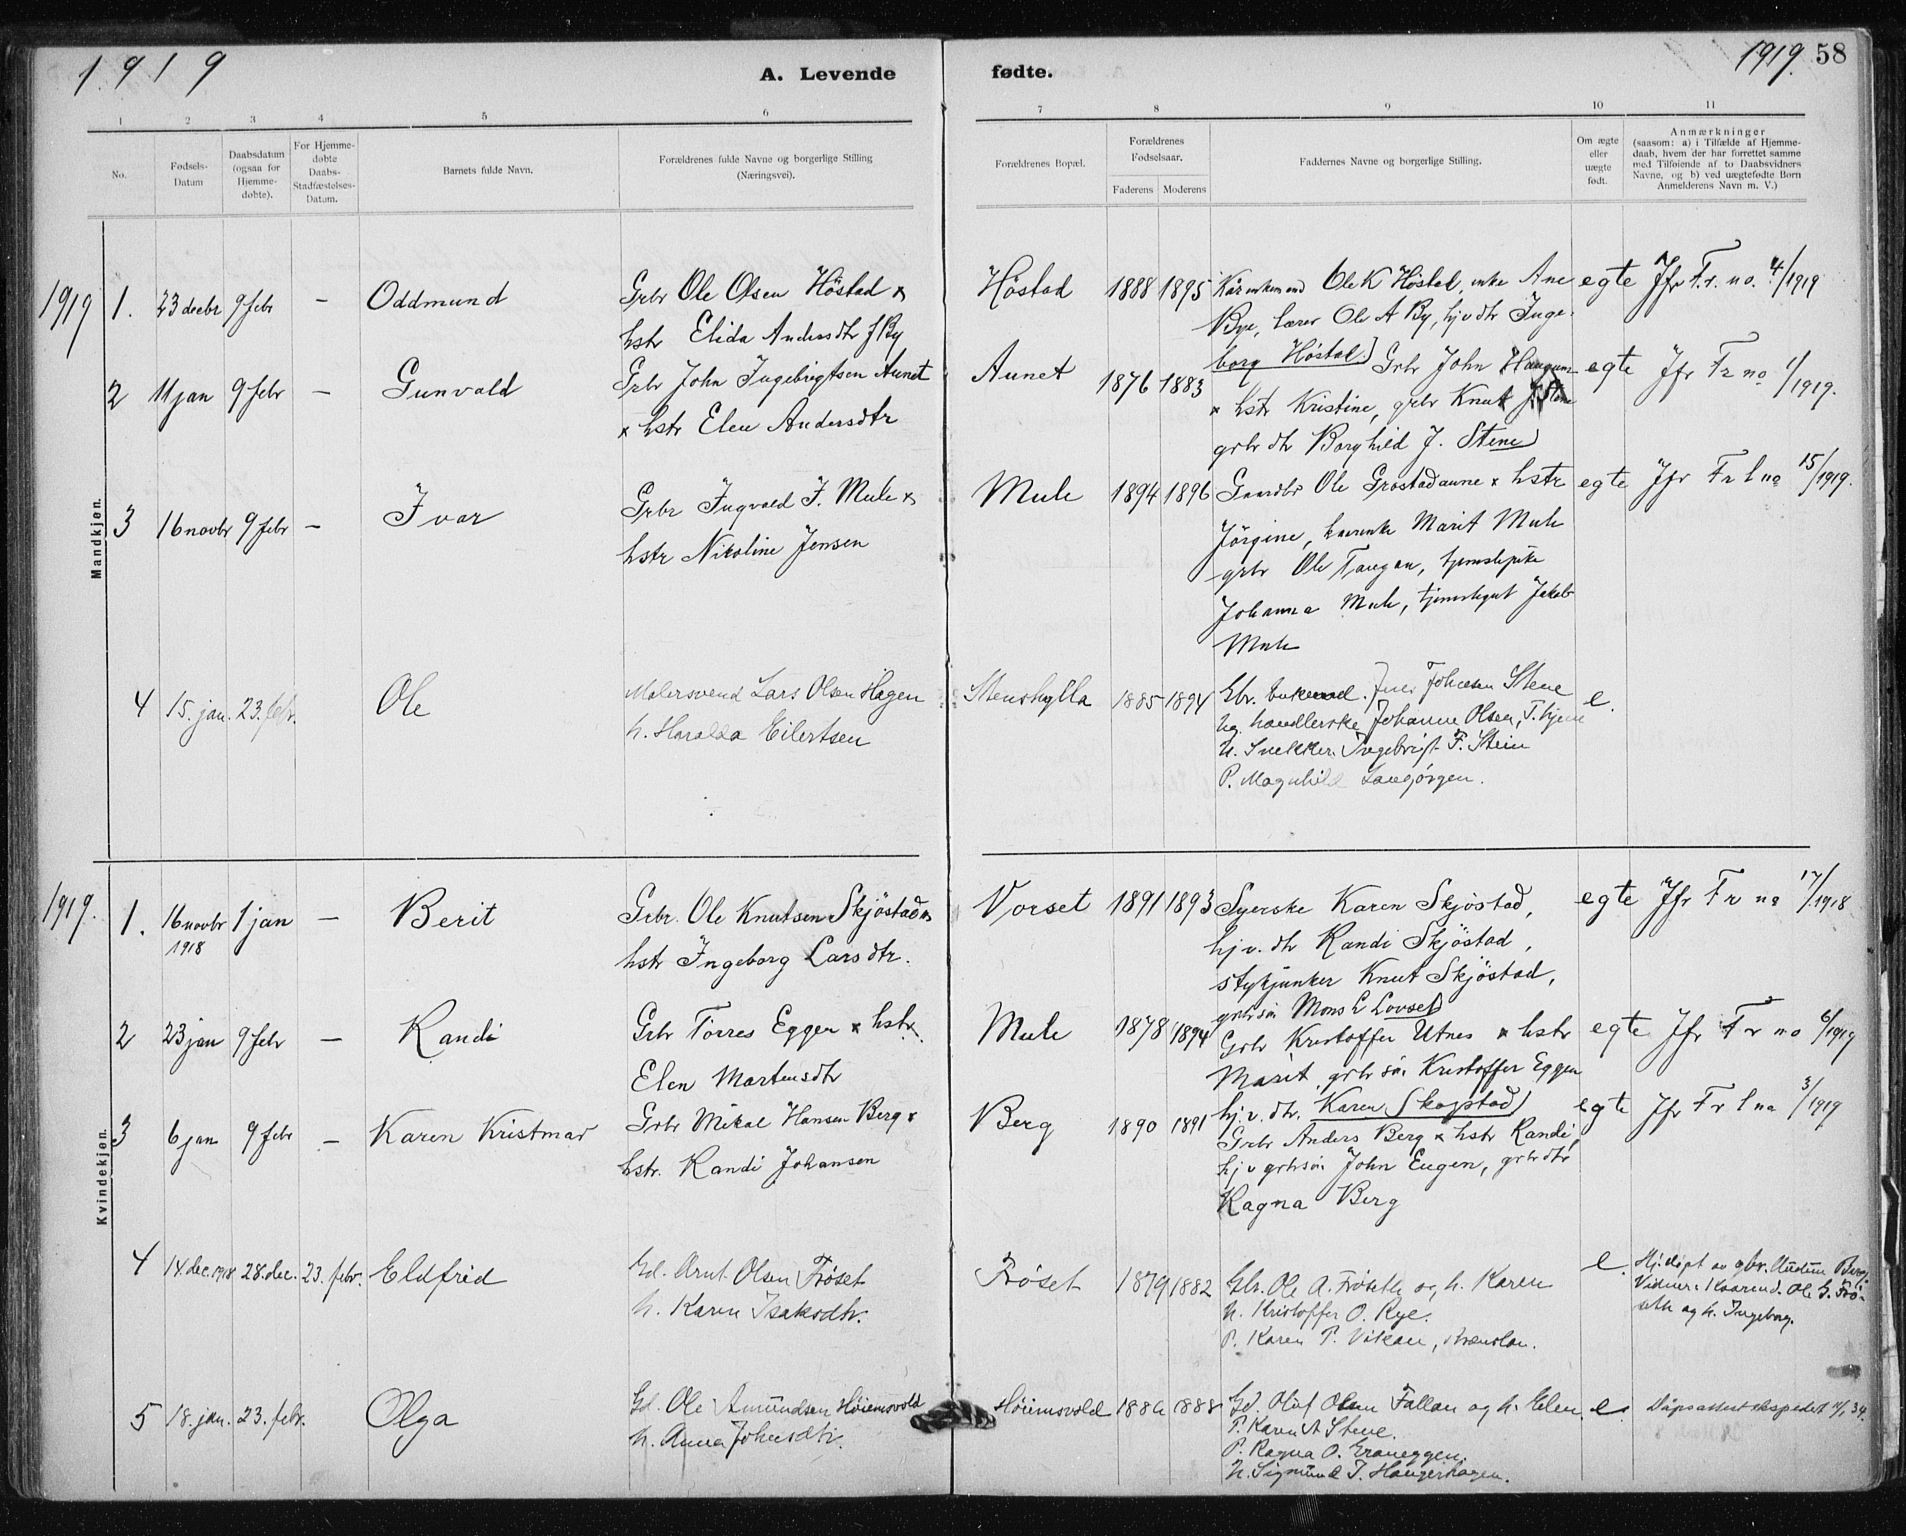 1919
A. Levende fødte.
1919. 58
1 2 3 4 5 6 7 8 9 10 11
No.
Fødsels-
Datum
Daabsdatum
(ogsaa for
Hjemme-
døbte).
For Hjemme-
døbte
Daabs-
Stadfæstelses-
Datum.
Barnets fulde Navn.
Forældrenes fulde Navne og borgerlige Stilling
(Næringsvei).
Forældrenes Bopæl.
Forældrenes
Fødselsaar.
Faderens Moderens
Faddernes Navne og borgerlige Stilling.
Om ægte
eller
uægte
født.
Anmærkninger
(saasom: a) i Tilfælde af Hjemme-
daab, hvem der har forrettet samme
med Tilføiende af to Daabsvidners
Navne, og b) ved uægtefødte Børn
Anmelderens Navn m. V.)
Mandkjøn.
1919 1. 23 decbr 9 febr – Oddmund
Grbr Ole Olsen Höstad x
hstr Elida Andersdtr f By
Höstad 1888 1895
Kårenkemand Ole K Höstad, enke Ane
Bye, lærer Ole A By, hjv dtr Inge-
borg Höstad
egte Jfr F.r. no. 4/1919
2 11 jan 9 febr – Gunvald
Grbr John Ingebrigtsen Aunet
x hstr Elen Andersdtr
Aunet 1876 1883
Grbr John Haugum
x hstr Kristine, grbr Knut J. Stene
grbr dtr Borghild J. Stene
egte Jfr Fr no 1/1919.
3 16 novbr 9 febr – Ivar
Grbr Ingvald J. Mule x
hstr Nikoline Jensen
Mule 1894 1896
Gaardbr Ole Grostadaune x hstr
Jörgine, Marit Mule
grbr Ole Tangan, tjenestepike
Johanna Mule, tjenestegut Jakob
Mule
egte Jfr Fr l no 15/1919.
4 15. jan. 23. febr. Ole
Malersvend Lars Olsen Hagen
h. Haralda Eilertsen
Stenshylla 1885 1894
Gbr. enkemd. Johnsen Stene
Ug. handlerske Johanne Olsen, T.hjem
U. Snekker Ingebrigt F. Stein
P. Magnhild Langjörgen.
e.
Kvindekjøn.
1919. 1. 16 novbr 1 jan – Berit
1918
Grbr. Ole Knutsen Skjöstad x
hstr Ingeborg Larsdtr.
Vorset 1891 1893
Syerske Karen Skjöstad,
hjv. dtr Randi Skjöstad,
stykjunker Knut Skjöstad,
grbr sön Mons L Lovset
egte Jfr Fr no 17/1918
2 23 jan 9 febr – Randi
Grbr Törres Eggen x hstr
Elen Martensdtr
Mule 1878 1894
Grbr Kristoffer Utnes x hstr
Marit, grbr sön Kristoffer Eggen
hjv. dtr. Karen Skogstad
egte Jfr Fr no 6/1919
3 6 jan 9 febr – Karen Kristmar
Grbr Mikal Hansen Berg x
hstr. Randi Johansen
Berg 1890 1891
Grbr Anders Berg x hstr Randi,
hjv grbrsön John Eugen, grbr dtr
Ragna Berg
egte Jfr Fr l no 3/1919
4 14. dec. 1918 28. dec. 23. febr. Eldfrid
Gd. Arnt Olsen Fröset
h. Karen Isaksdtr.
Fröset 1879 1882
Gbr. Ole A. Fröseth og h. Karen
U. Kristoffer O. Rye.
P. Karen P. Vikan,
e. Hj.döpt av gbr. Audun Berg.
Vidner: Kaarmd. Ole G. Frö-
seth og h. Ingeborg.
5 18. jan. 23. febr. Olga
Gd. Ole Amundsen Höiemsvold
h. Anna Johnsdtr.
Höiemsvold 1886 1888
Gd. Oluf Olsen Fallan og h. Elen
P. Karen A Stene.
P. Ragna O. Graneggen.
U. Sigmund J. Haugerhagen.
e. Dåpsattest ekspedert 34.